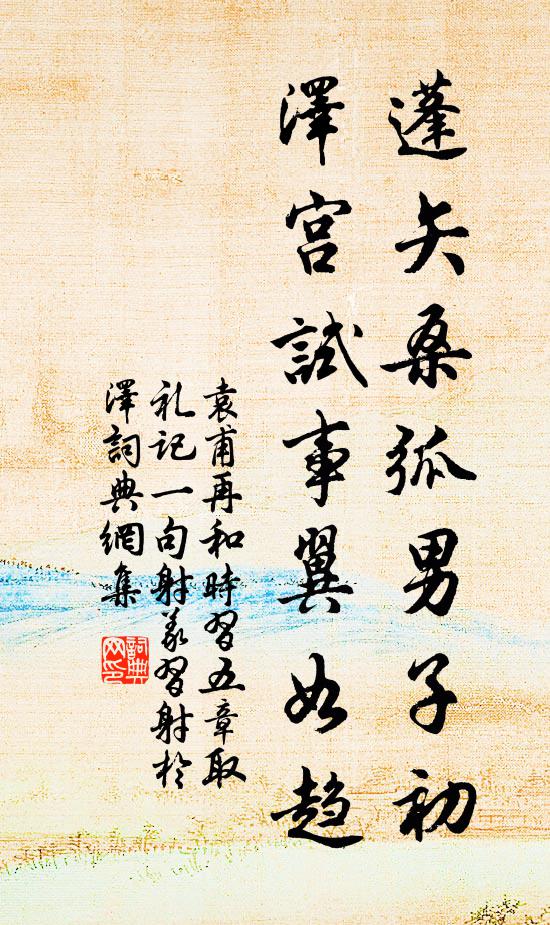 蓬矢桑弧男子初
澤宮試事翼如趋
袁甫再和時習五章取
礼记一句射義習射於
澤詞典網集
詞典
网印